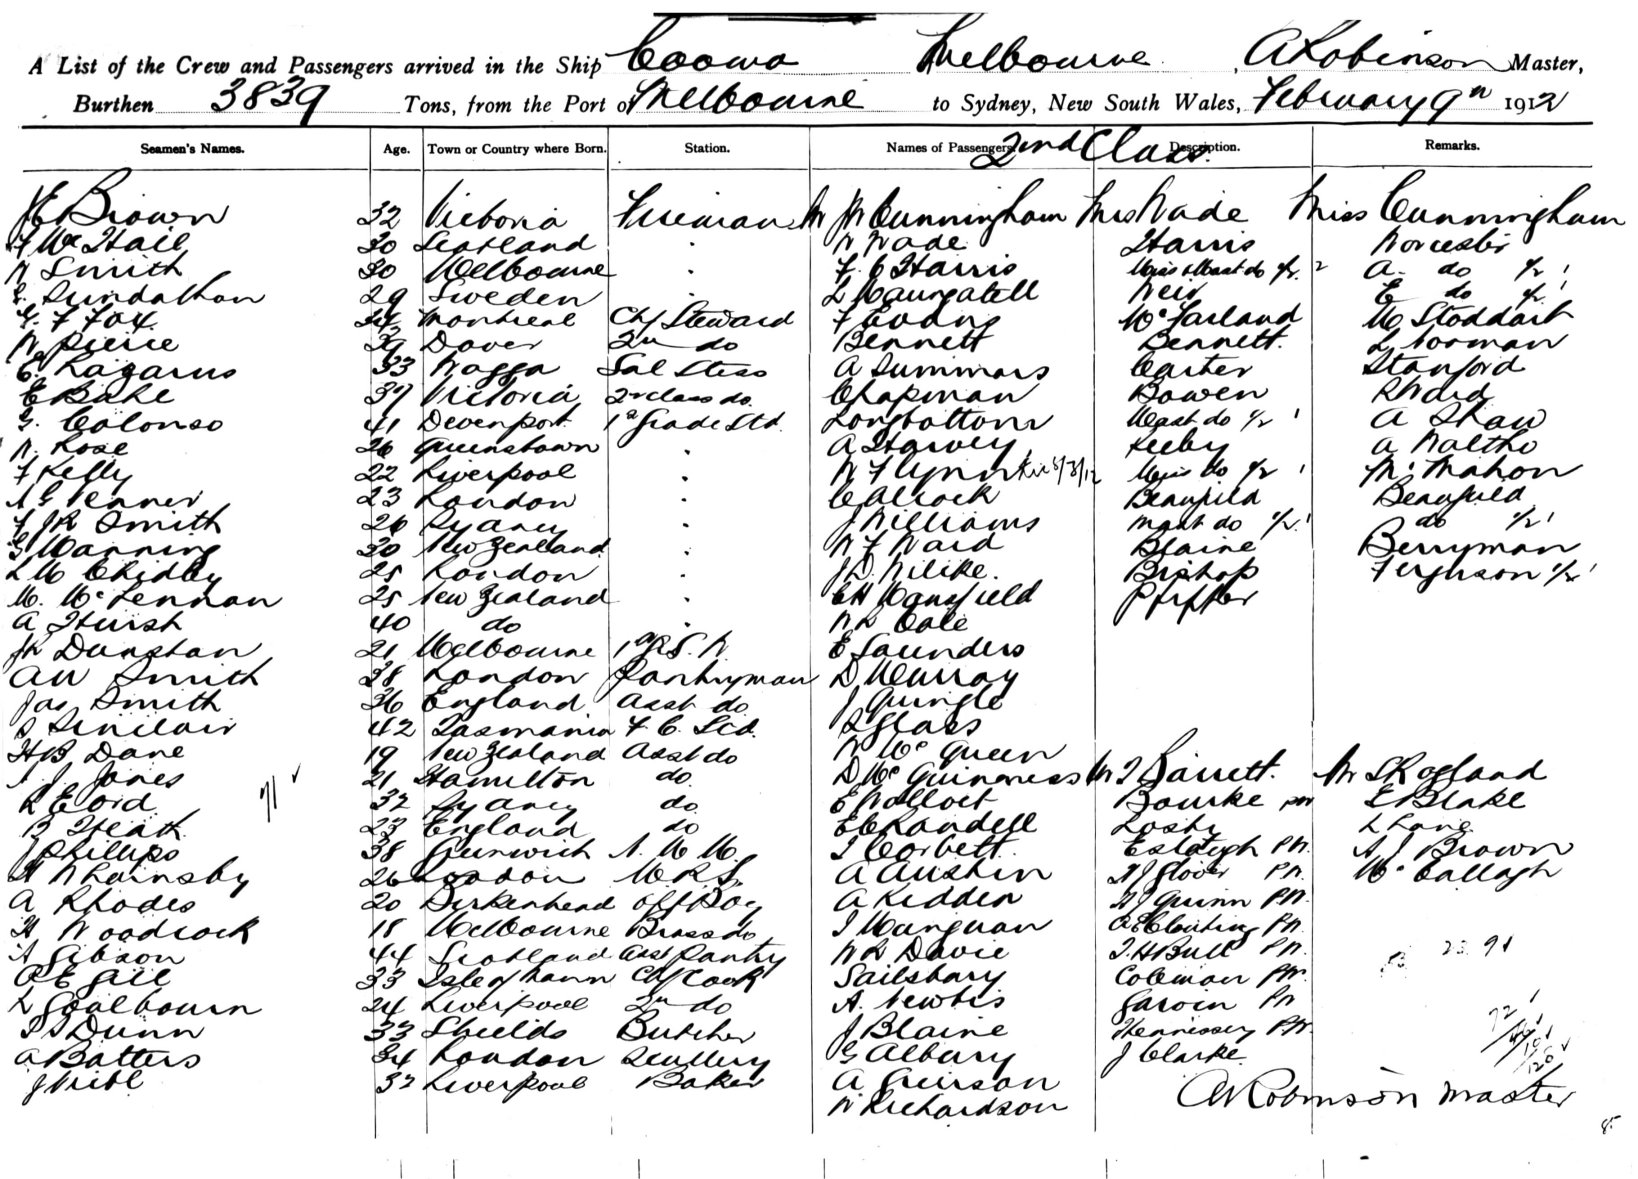 A List of the Crew and Passengers arrived in the Ship Cooma Melbourne A Robinson Master,
Burthen 3839 Tons, from the Port of Melbourne to Sydney, New South Wales, February 9th 1912
Seamen's Names. Age. Town or Country where Born. Station. Names of Passengers. 2nd Class. Description. Remarks.
Brown 32 Victoria Fireman Mr Cunningham Mrs Wade Miss Cunningham
F McHail 30 Scotland " W Wade Harris Worcester
W Smith 30 Melbourne " F C Harris Miss & Mast do 1/2 2 A. do 1/2 1
29 Sweden " Weir E do 1/2 1
F Fox 34 Montreal Chf Steward F Evans McFarland M Stoddart
W Pierce 39 Dover 2nd do Bennett Bennett L Norman
C. Lazarus 33 Wagga Sal Stess A Summars Carter Stanford
E Bake 37 Victoria 2nd class do Chapman Bowen R Ward
Colonso 41 Devenport 1st Grade Std. Longbottom Mast do 1/2 1 A Shaw
W. Rose 26 Queenstown " A Harvey A Waltho
F Kelly 22 Liverpool " W Flynn Miss do 1/2 1 McMahon
23 London " C Alcock Beaufield Beaufield
F J R Smith 26 Sydney " J Williams Mast do 1/2 1 do 1/2 1
G Manning 30 New Zealand " W F Ward Blaine Berryman
L M Chidley 25 London " J D. Wilike. Bishop Ferguson 1/2 1
M. McLennan 25 New Zealand " C H Mansfield Pfiffer
A Hurst 40 do " W L Cole
J R Dunstan 21 Melbourne E Saunders
A W Smith 38 London Pantryman D Murray
Jas Smith 36 England Asst do J Quingle
S Sinclair 42 Tasmania F. C. Std. S Glass
H B Dane 19 New Zealand Asst do W McQueen
J Jones 21 Hamilton do D McGuinness Mr T Barrett. Mr S Rogland
L E Ord 71 32 Sydney do E Wallock Bourke PM E Blake
B Heath 23 England do E C Randell Losty L Lane
J Phillips 38 Greenwich T Corbett. Estaugh PM. A J Brown
H W Hainsby 26 London A Austin H J Glover PM. McCallagh
A Rhodes 20 Birkenhead Off Boy A Kidden H J Quinn PM.
H Woodcock 18 Melbourne Brass do J Manguan PM.
A Gibson 44 Scotland Asst Pantry W L Davie T. H Bull PM. 23 91
A E Gill 33 Isle of Mann Chf Cook Sailsbary Coleman PM.
L Goalbourn 24 Liverpool 2nd do A. Newbis Garvin PM
T S Dunn 33 Shields Butcher J Blaine Hennessey PM. 72
A Batters 34 London Scullery G Albury J Clarke
37 Liverpool Baker A Grierson
W Richardson A Robinson Master